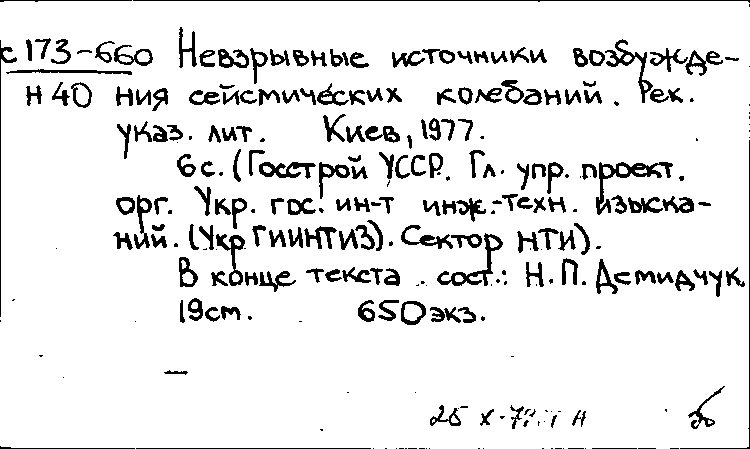 с 173-660 Невзрывные источники возбужде-
Н 40 ния сейсмических колебаний. Рек.
указ. лит. Киев, 1977.
6 с. (Госстрой УССР. Гл. упр. проект.
орг. Укр. гос. ин-т инж.-техн. изыска-
ний. (УкрГИИНТИЗ). Сектор НТИ).
В конце текста сост.: Н.П. Демидчук
19 см. 650 экз.
25 X-